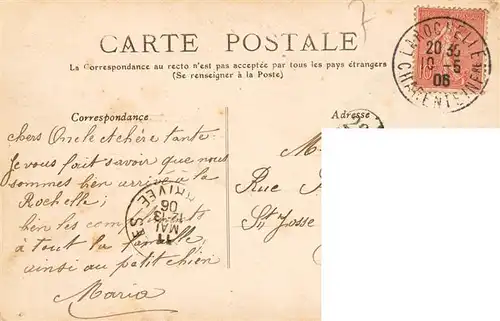 7
CARTE POSTALE
La Correspondance au recto n'est pas acceptée par tous les pays étrangers
(Se renseigner à la Poste)
LA ROCHELLE
20 35
10 - 5
06
CHARENTE INFRE
Correspondance
Adresse
chers Oncle et chère tante.
Je vous fait savoir que nous
sommes bien arrivé à la
Rochelle;
bien les compliments
à tout la famille,
ainsi au petit chien
Maria
M
Rue
St Josse
ARRIVÉE
11
MAI
12-13
06